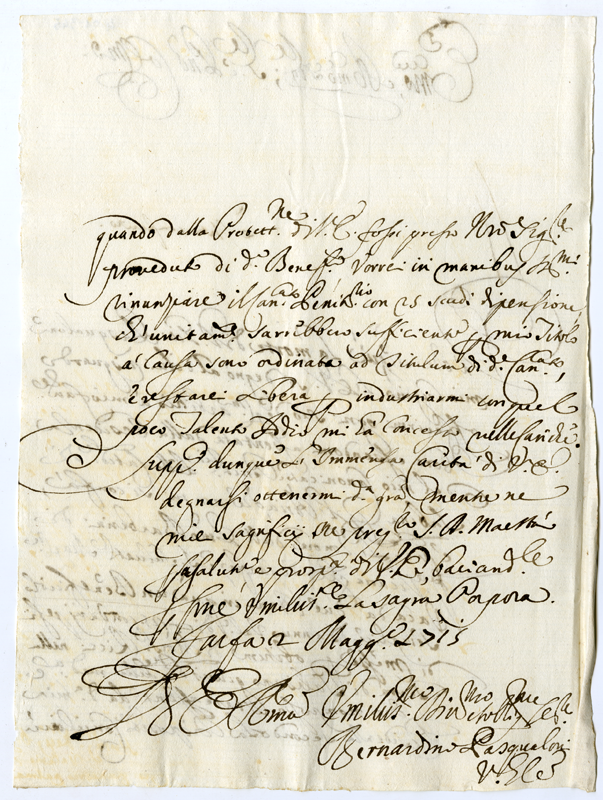 quando dalla Protett.ne di V.E. fossi presso Nro Sig.re
proveduto di d.o Benef.o vorrei in manibus SS.mi
rinunziare il Can.to Penit.rio con 25 scudi di pensione,
ch'unitam.te sarrebbero sufficiente p mio Titolo
a Causa sono ordinato ad Titulum di d.o Can.cato,
e restare libera p industriarmi con quel
poco Talento Iddio mi hà Concesso nelle
Supp.co dunque l'Immenza Carità di V.E.
degnarsi ottenermi d.a gra, mentre ne
miei sagrificij ne prego S.D. Maestà
p la salute e prosp.tà di V.E., baciand.le
p fine umilis.te la sagra Porpora.
Farfa 2 Magg.o 1715
D V E Rma Umilis.mo Div.mo Oblig.mo Se.re
Bernardino Pasqualoni